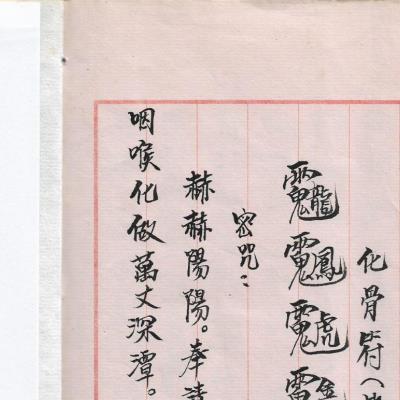 化骨符（
密咒：
赫赫陽陽。奉請
咽喉化做萬丈深潭。